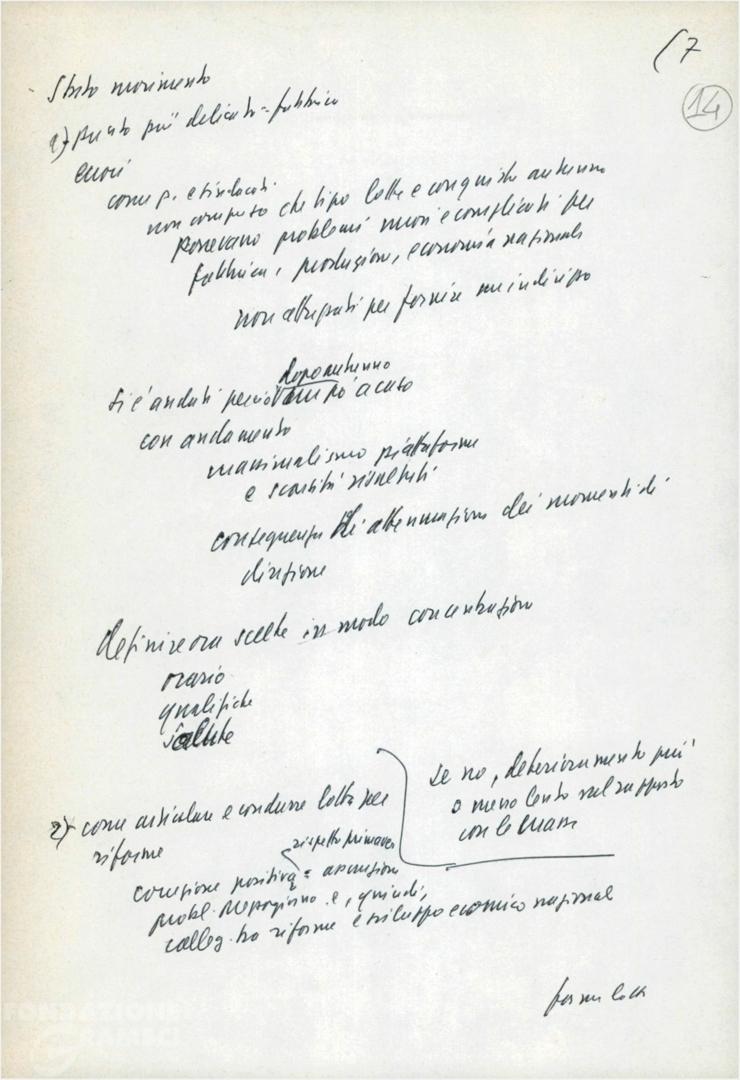 (7
14
Stato movimento
1) punto più delicato = fabbrica
errori
come p. e sindacati
non compreso che tipo lotte e conquiste autunno
ponevano problemi nuovi e complicati per
fabbrica, produzione, economia nazionale
non attrezzati per fornire un indirizzo
dopo autunno
si è andati perciò un po' a caso
con andamento
massimalismo piattaforme
e scarsità risultati
conseguenza di attenuazione dei momenti di
direzione
definire ora scelte in modo concentrazione
orario
qualifiche
salute
se no, deterioramento più
o meno lento nel rapporto
con le masse
2) come articolare e condurre lotta per
riforme
rispetto primavera
correzione positiva = assunzione
probl. Mezzogiorno e, quindi,
colleg. tra riforme e sviluppo economico nazionale
forme lotta
FONDAZIONE
GRAMSCI